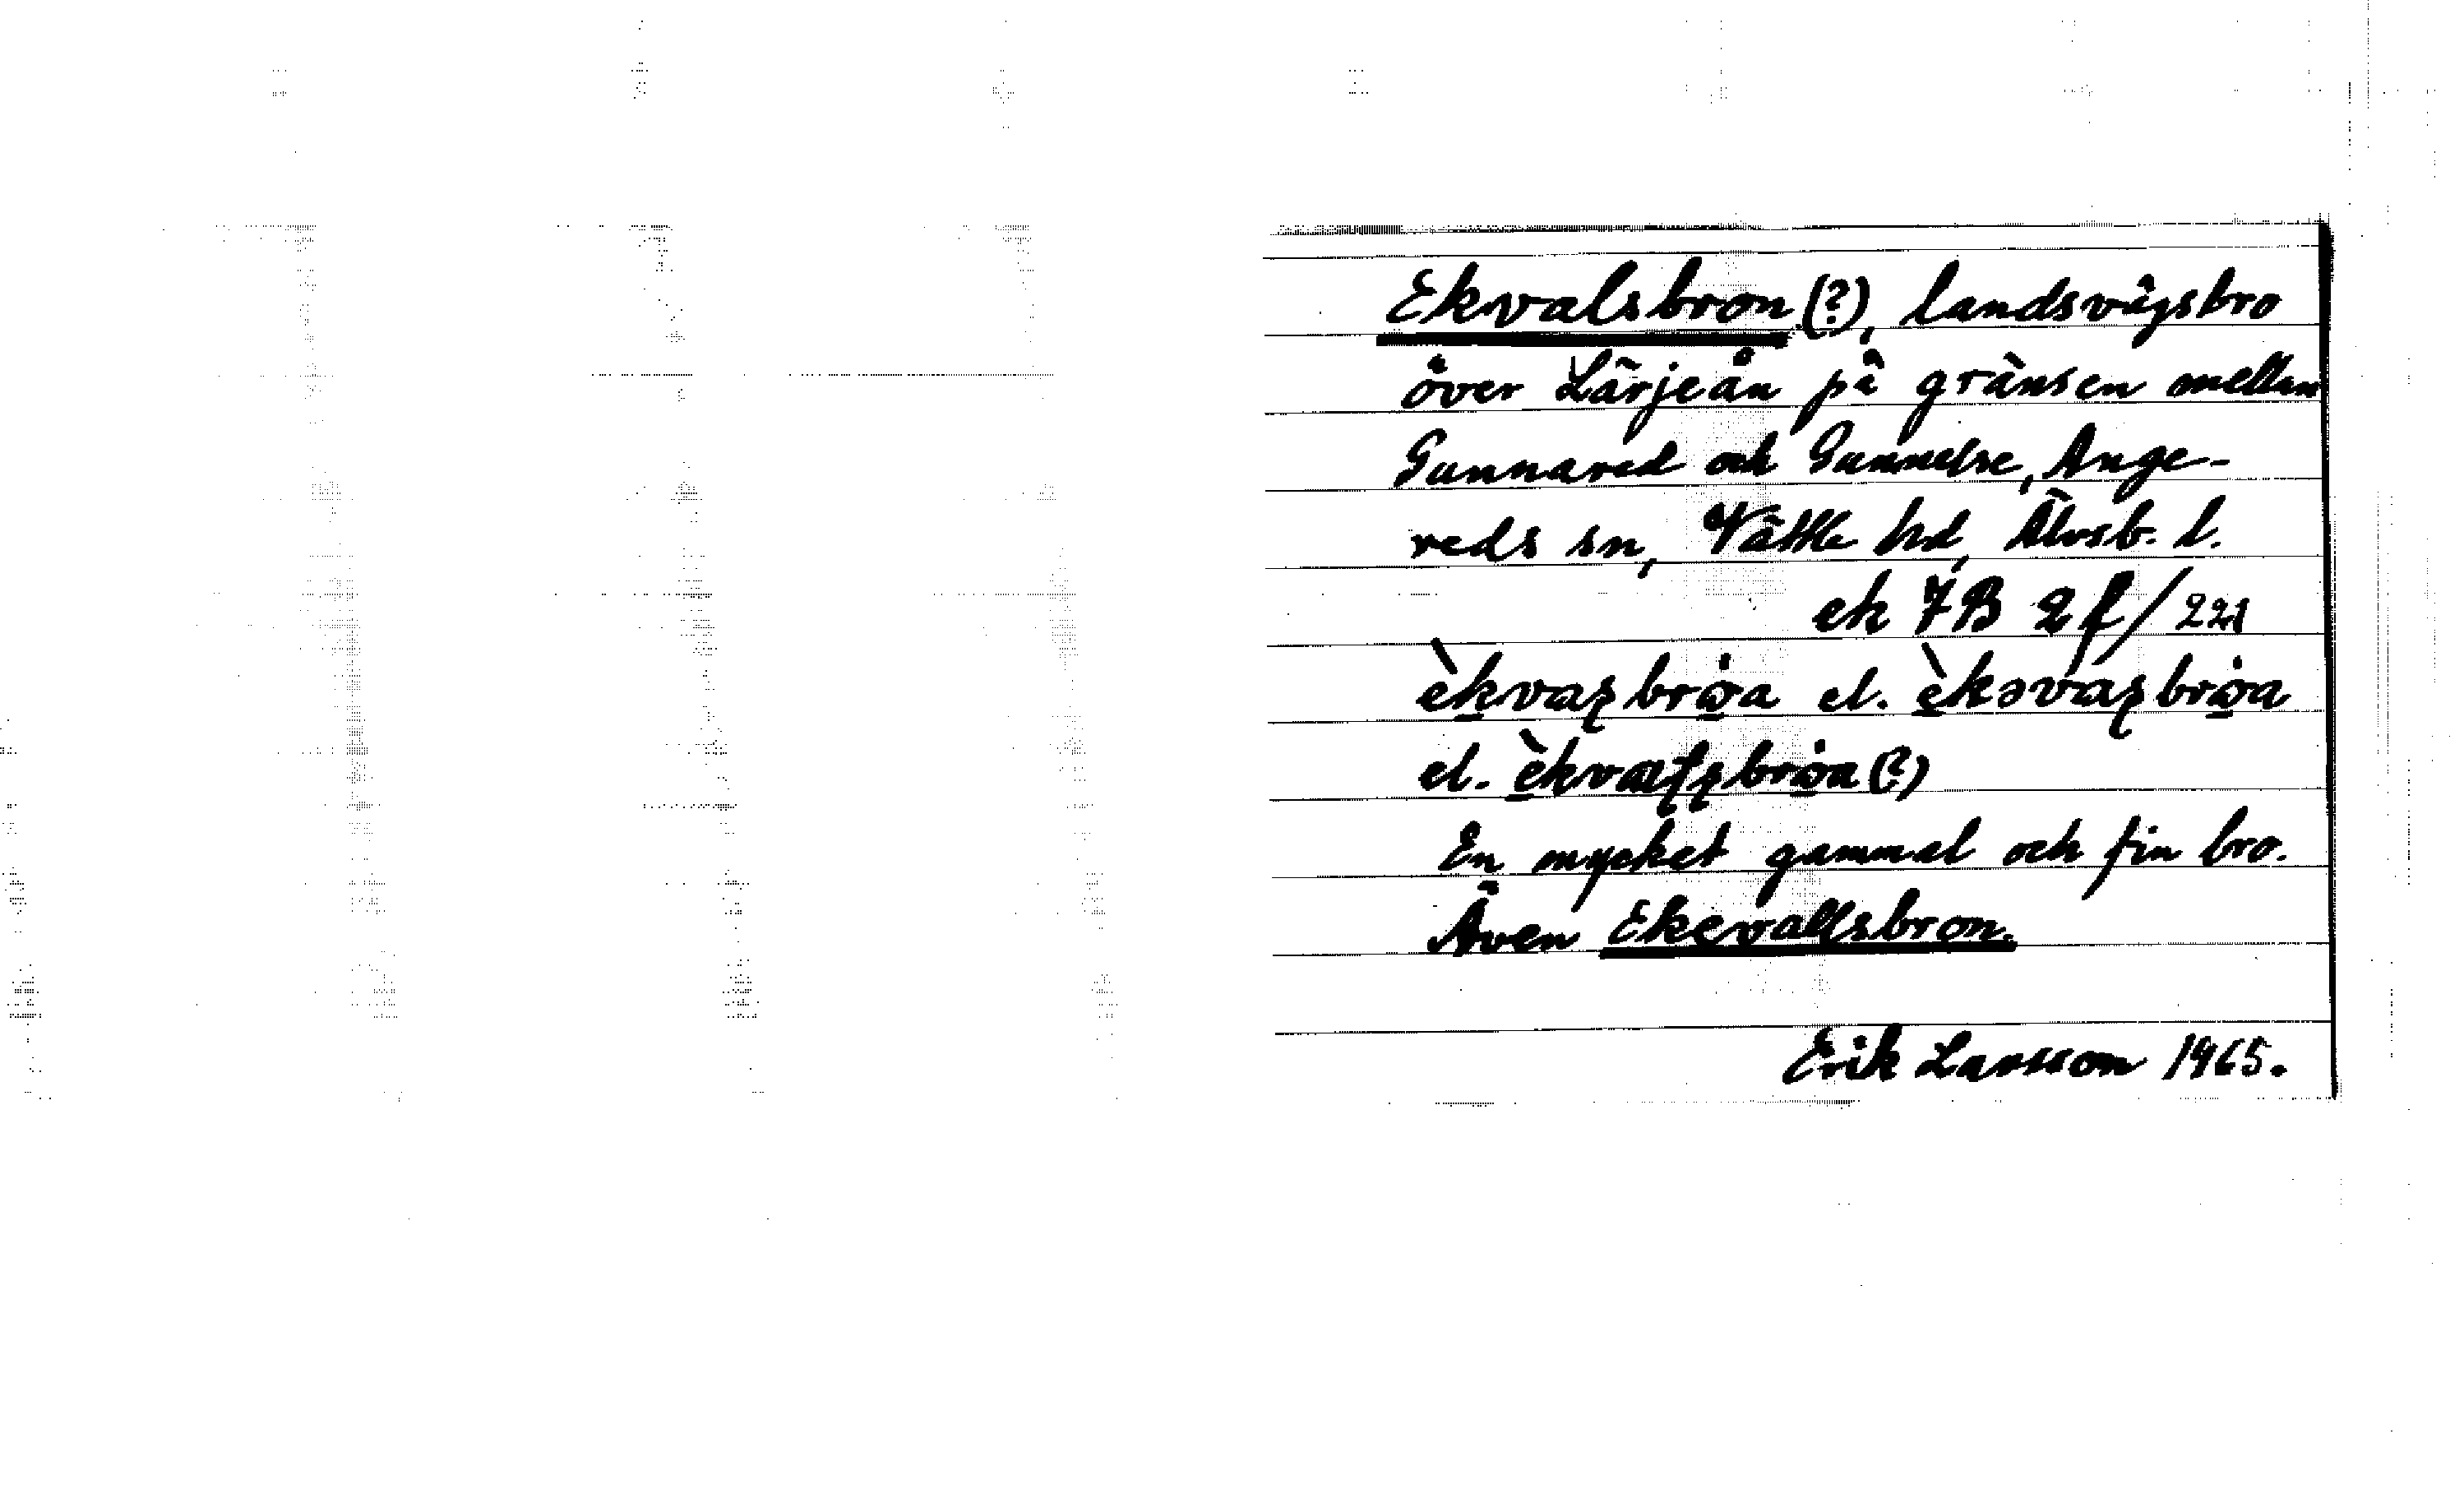 Ekvalsbron (?), landsvägsbro
över Lärjeån på gränsen mellan
Gunnared och Gunnelse, Ange-
reds sn, Vättle hd, Älvsb. l.
ek 7B 2f/221
èkvaʂbrωa el. èkəvaʂbrωa
el. èkvaɽʂbrωa (?)
En mycket gammal och fin bro.
Även Ekevallsbron.
Erik Larsson 1965.